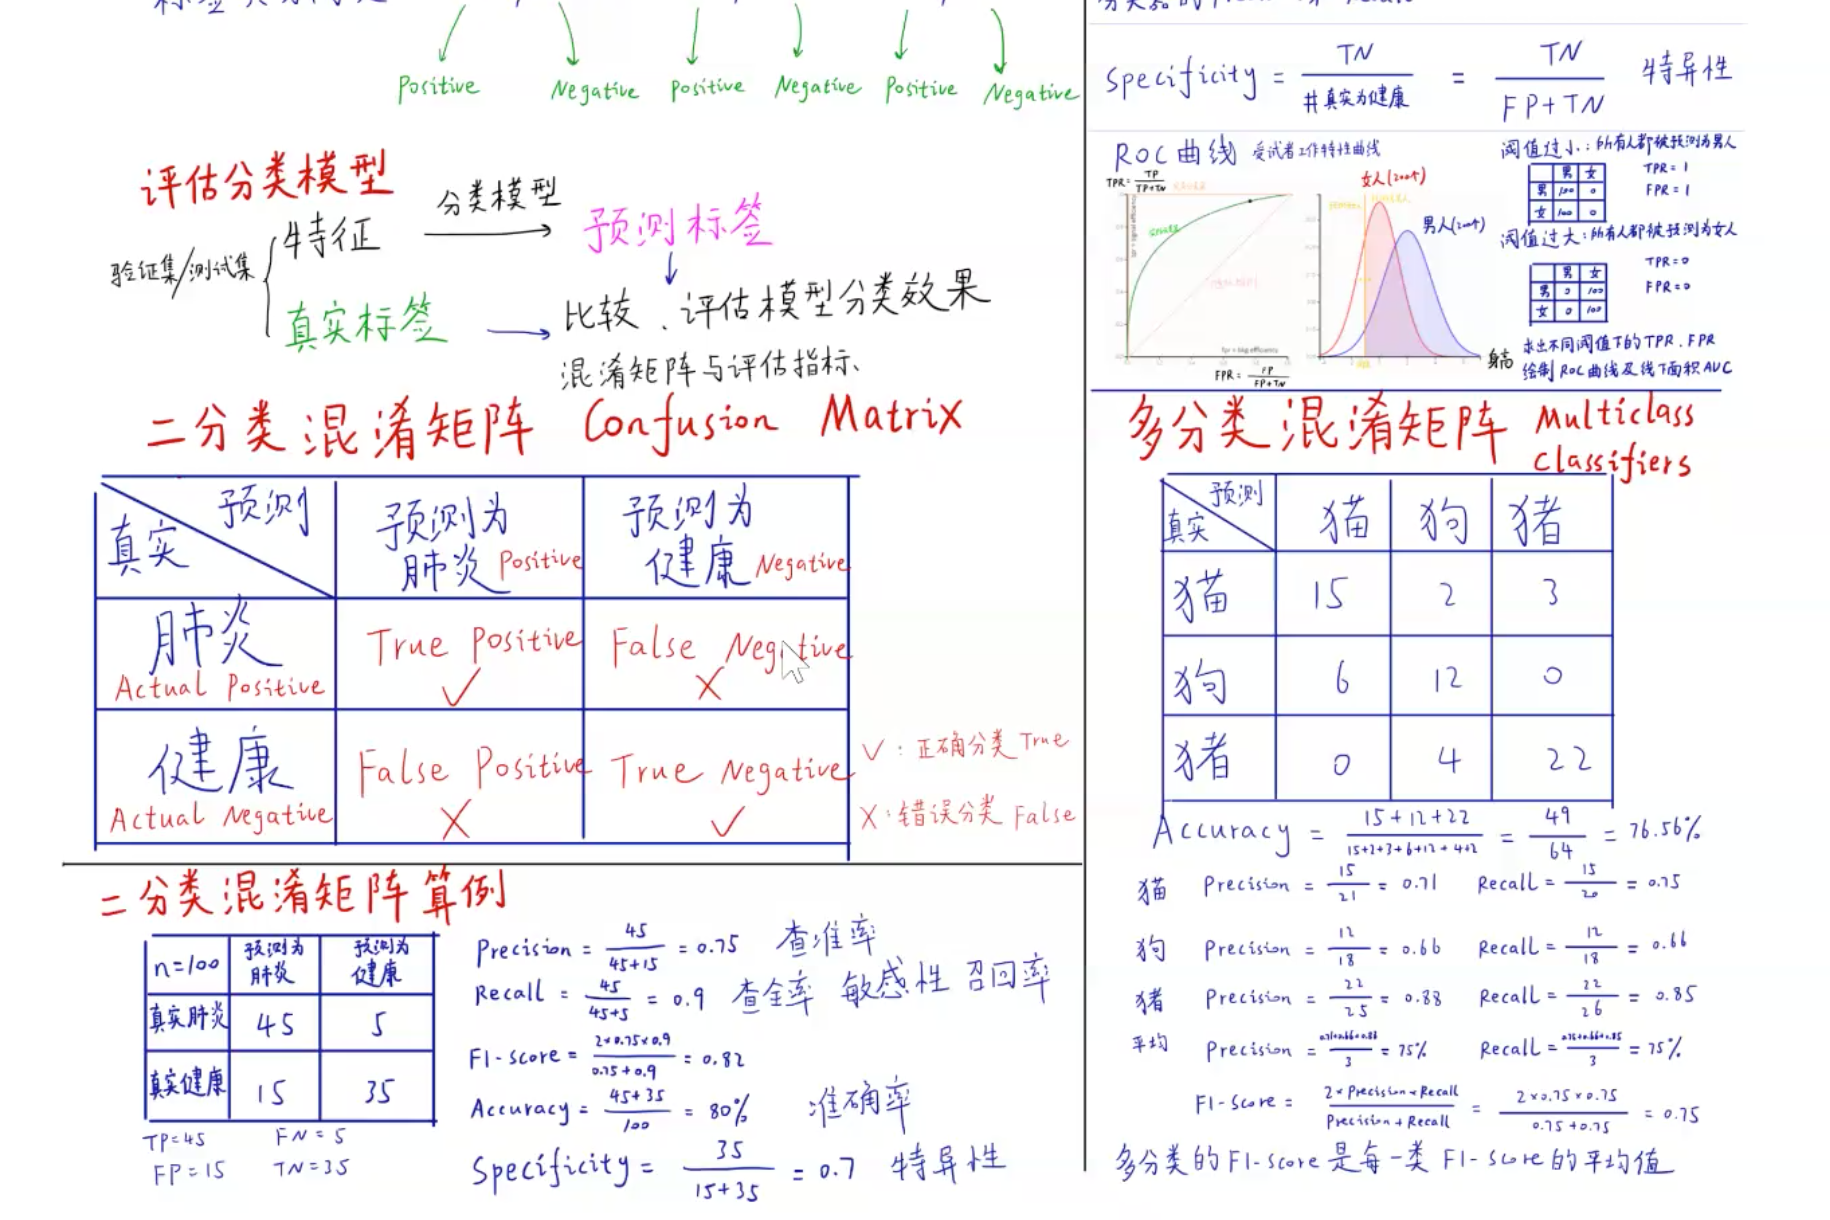 Positive Negative Positive Negative Positive Negative
评估分类模型
验证集/测试集
特征
分类模型
预测标签
真实标签
比较、评估模型分类效果
混淆矩阵与评估指标、
二分类混淆矩阵 Confusion Matrix
真实 预测
预测为肺炎 Positive
预测为健康 Negative
肺炎 Actual Positive
True Positive ✓
False Negative X
健康 Actual Negative
False Positive X
True Negative ✓
✓: 正确分类 True
X: 错误分类 False
二分类混淆矩阵算例
n=100 预测为肺炎 预测为健康
真实肺炎 45 5
真实健康 15 35
TP=45 FN=5
FP=15 TN=35
Precision = 45 / 45+15 = 0.75 查准率
Recall = 45 / 45+5 = 0.9 查全率 敏感性 召回率
F1-score = 2×0.75×0.9 / 0.75+0.9 = 0.82
Accuracy = 45+35 / 100 = 80% 准确率
Specificity = 35 / 15+35 = 0.7 特异性
Specificity = TN / #真实为健康 = TN / FP+TN 特异性
ROC曲线 受试者工作特性曲线
TPR = TP / TP+FN
FPR = FP / FP+TN
女人(200个)
男人(200个)
身高
阈值过小:所有人都被预测为男人
男 女
男 100 0
女 100 0
TPR=1
FPR=1
阈值过大:所有人都被预测为女人
男 女
男 0 100
女 0 100
TPR=0
FPR=0
求出不同阈值下的TPR、FPR
绘制ROC曲线及线下面积AUC
多分类混淆矩阵 Multiclass Classifiers
真实 预测 猫 狗 猪
猫 15 2 3
狗 6 12 0
猪 0 4 22
Accuracy = 15+12+22 / 15+2+3+6+12+4+22 = 49 / 64 = 76.56%
猫 Precision = 15 / 21 = 0.71 Recall = 15 / 20 = 0.75
狗 Precision = 12 / 18 = 0.66 Recall = 12 / 18 = 0.66
猪 Precision = 22 / 25 = 0.88 Recall = 22 / 26 = 0.85
平均 Precision = 0.71+0.66+0.88 / 3 = 75% Recall = 0.75+0.66+0.85 / 3 = 75%
F1-Score = 2×Precision×Recall / Precision+Recall = 2×0.75×0.75 / 0.75+0.75 = 0.75
多分类的F1-Score是每一类F1-Score的平均值